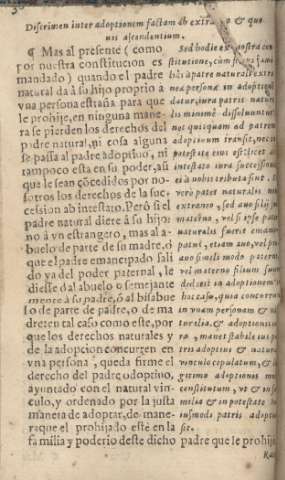 Discrimen inter adoptionem factam ab extraneo & que
uis ascendentium.
¶ Mas al presente (como
por nuestra constitucion es
mandado) quando el padre
natural da à su hijo proprio a
vna persona estraña para que
le prohije, en ninguna mane-
ra se pierden los derechos del
padre natural, ni cosa alguna
se passa al padre adoptiuo, ni
tampoco esta en su poder, aũ
que le sean cõcedidos por no-
sotros los derechos de la suc-
cession ab intestato. Pero si el
padre natural diere à su hijo
no à vn estrangero, mas al a-
buelo de parte de su madre, ó
que el padre emancipado sali
do ya del poder paternal, le
diesse dal abuelo o semejante
mente à su padre, ó al bisabue
lo de parte de padre, o de ma
dre en tal caso como este, por
que los derechos naturales y
de la adopcion concurren en
vna persona, queda firme el
derecho del padre adoptiuo,
ayuntado con el natural vin-
culo, y ordenado por la justa
manera de adoptar, de mane-
ra que el prohijado estè en la
familia y poderio deste dicho padre que le prohijò
Sed hodie ex nostra con
stitutione, cùm filius fami
liâs à patre naturali extra
neæ personæ in adoptionē
datur, iura patris natu-
lis minimè dissoluuntur,
nec quicquam ad patrem
adoptiuum transit, nec in
potestate eius est, licet ab
intestato iura successionis
ei à nobis tributa sint. Si
verò pater naturalis non
extraneo, sed auo filij sui
materno, vel si ipse pater
naturalis fuerit emanci-
patus, etiam auo, vel pro-
auo simili modo paterno
vel materno filium suum
dederit in adoptionem: in
hoc casu, quia concurrunt
in vnam personam & na-
turalia, & adoptionis iu-
ra, manet stabile ius pa-
tris adoptiui & naturali
vinculo copulatum, & le-
gitimo adoptionis modo
constitutum, vt & in fa-
milia & in potestate hu-
iusmodi patris adoptiui
sit.